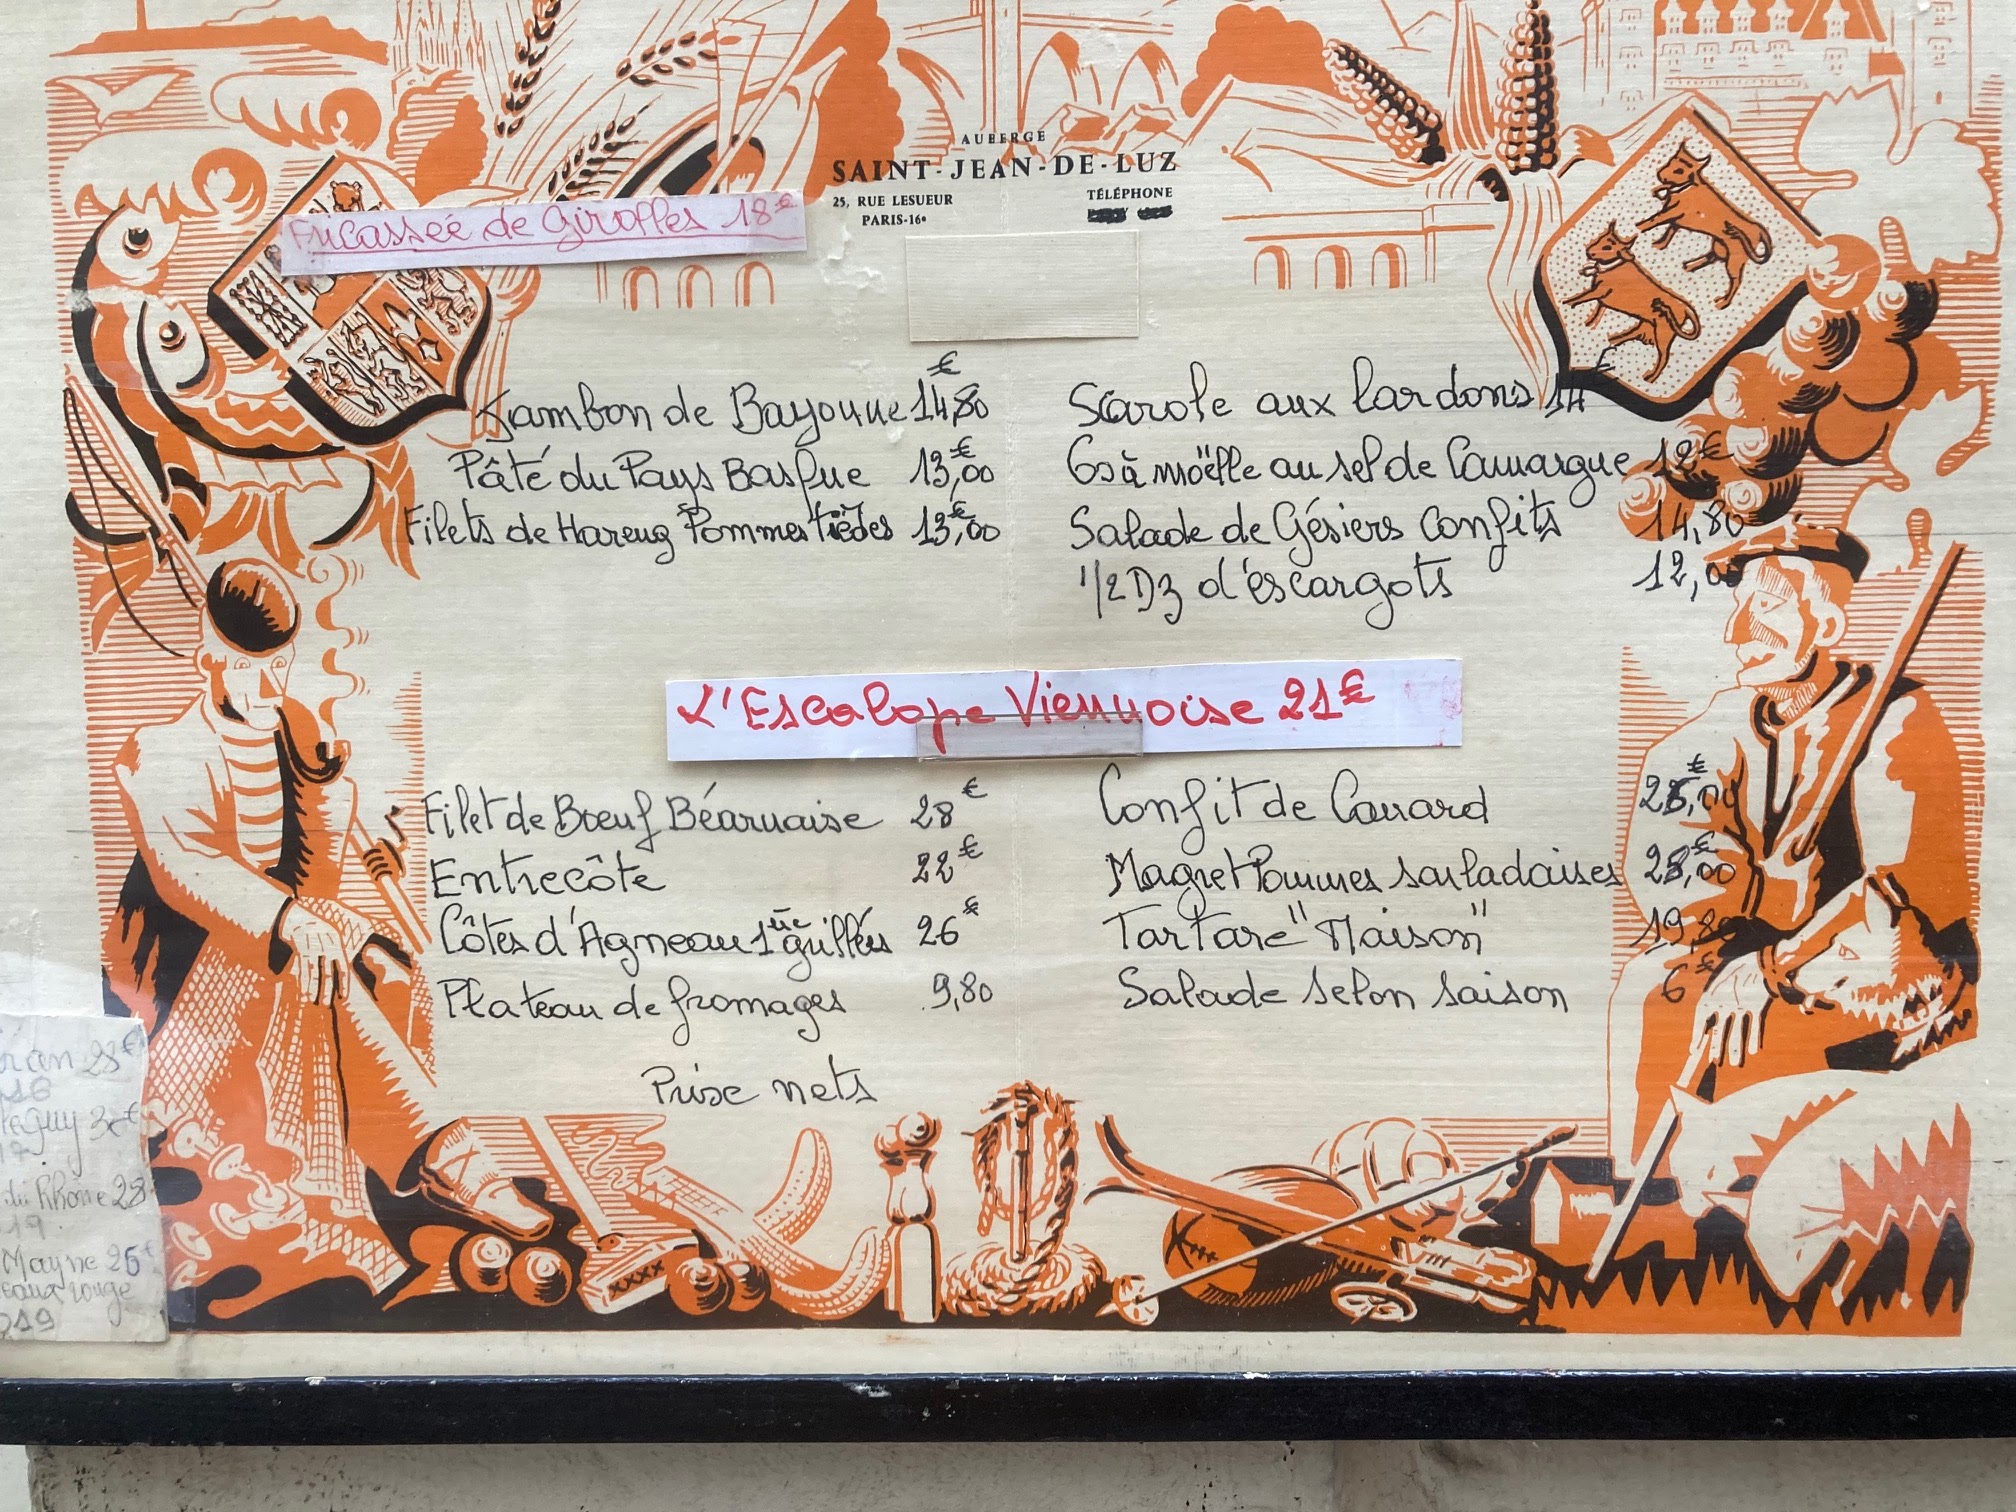 AUBERGE
SAINT-JEAN-DE-LUZ
25, RUE LESUEUR
PARIS-16e
TÉLÉPHONE
Fricassée de Girolles 18€
Jambon de Bayonne 14,80 €
Pâté du Pays Basque 13,00 €
Filets de Hareng Pommes tièdes 13,00 €
Scarole aux lardons 14
Os à moëlle au sel de Camargue 12€
Salade de Gésiers Confits 14,80
1/2 Dz d'éscargots 12,00
L'Escalope Viennoise 21€
Filet de Bœuf Béarnaise 28 €
Entrecôte 22 €
Côtes d'Agneau 1ère grillées 26 €
Plateau de fromages 9,80
Confit de Canard
Magret Pommes sarladaises
Tartare "Maison" 19,80
Salade selon saison 6 €
Prix nets
23 €
du Rhône 28
Mayne 26 €
rouge